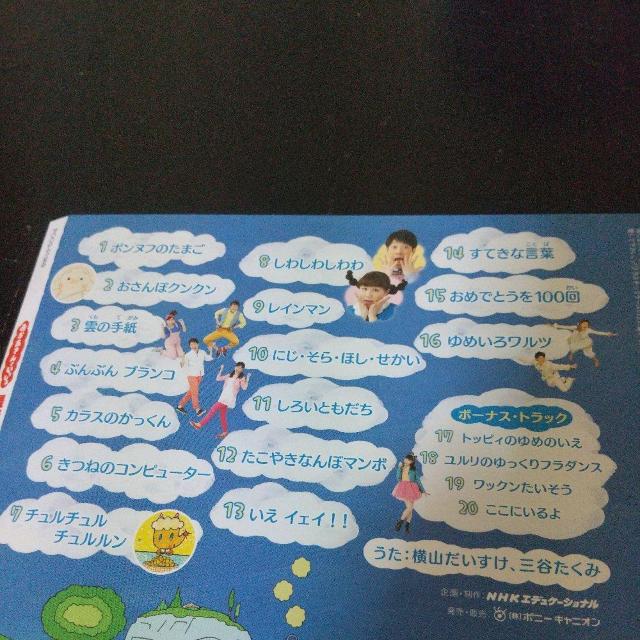 1 ボンヌフのたまご
2 おさんぽクンクン
3 雲の手紙
くも てがみ
4 ぶんぶん ブランコ
5 カラスのかっくん
6 きつねのコンピューター
7 チュルチュル
チュルルン
8 しわしわしわわ
9 レインマン
10 にじ・そら・ほし・せかい
11 しろいともだち
12 たこやきなんぼマンボ
13 いえ イェイ!!
14 すてきな言葉
ことば
15 おめでとうを100回
かい
16 ゆめいろワルツ
ボーナス・トラック
17 トッピィのゆめのいえ
18 ユルリのゆっくりフラダンス
19 ワックンたいそう
20 ここにいるよ
うた:横山だいすけ、三谷たくみ
企画・制作 NHKエデュケーショナル
発売・販売 (株)ポニーキャニオン